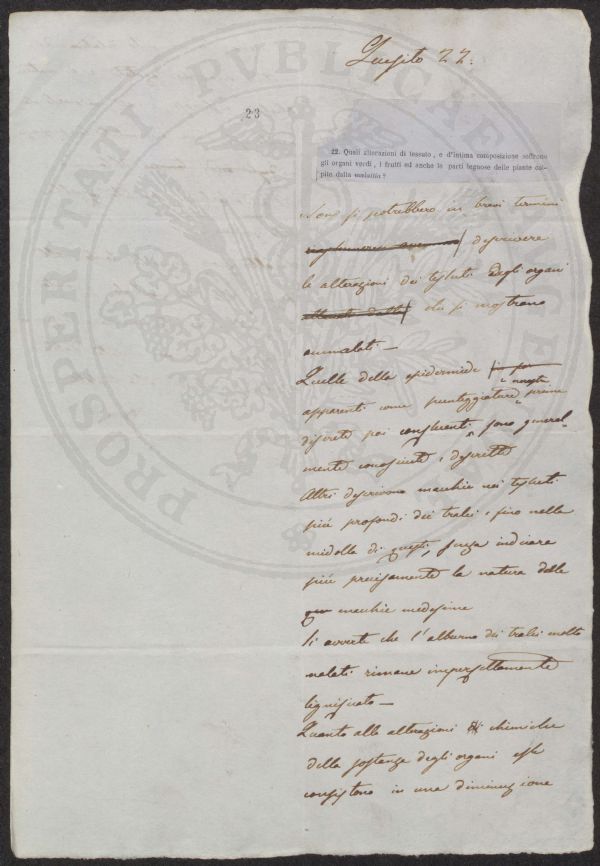 Quesito 22.
23
22. Quali alterazioni di tessuto, e d'intima composizione soffrono
gli organi verdi, i frutti ed anche le parti legnose delle piante col-
pite dalla malattia?
PROSPERITATI PVBLICAE
Non si potrebbero in brevi termini
descrivere
le alterazioni dei tessuti degli organi
che si mostrano
ammalati —
Quelle della epidermide
apparenti come punteggiature nerastre prima
discrete poi confluenti, sono general-
mente conosciute, e descritte
Altri descrivono macchie nei tessuti
più profondi dei tralci, fino nella
midolla di questi, senza indicare
più precisamente la natura delle
macchie medesime
Si avverte che l'alburno dei tralci molto
malati rimane imperfettamente
lignificato —
Quanto alle alterazioni chimiche
della sostanza degli organi esse
consistono in una diminuzione